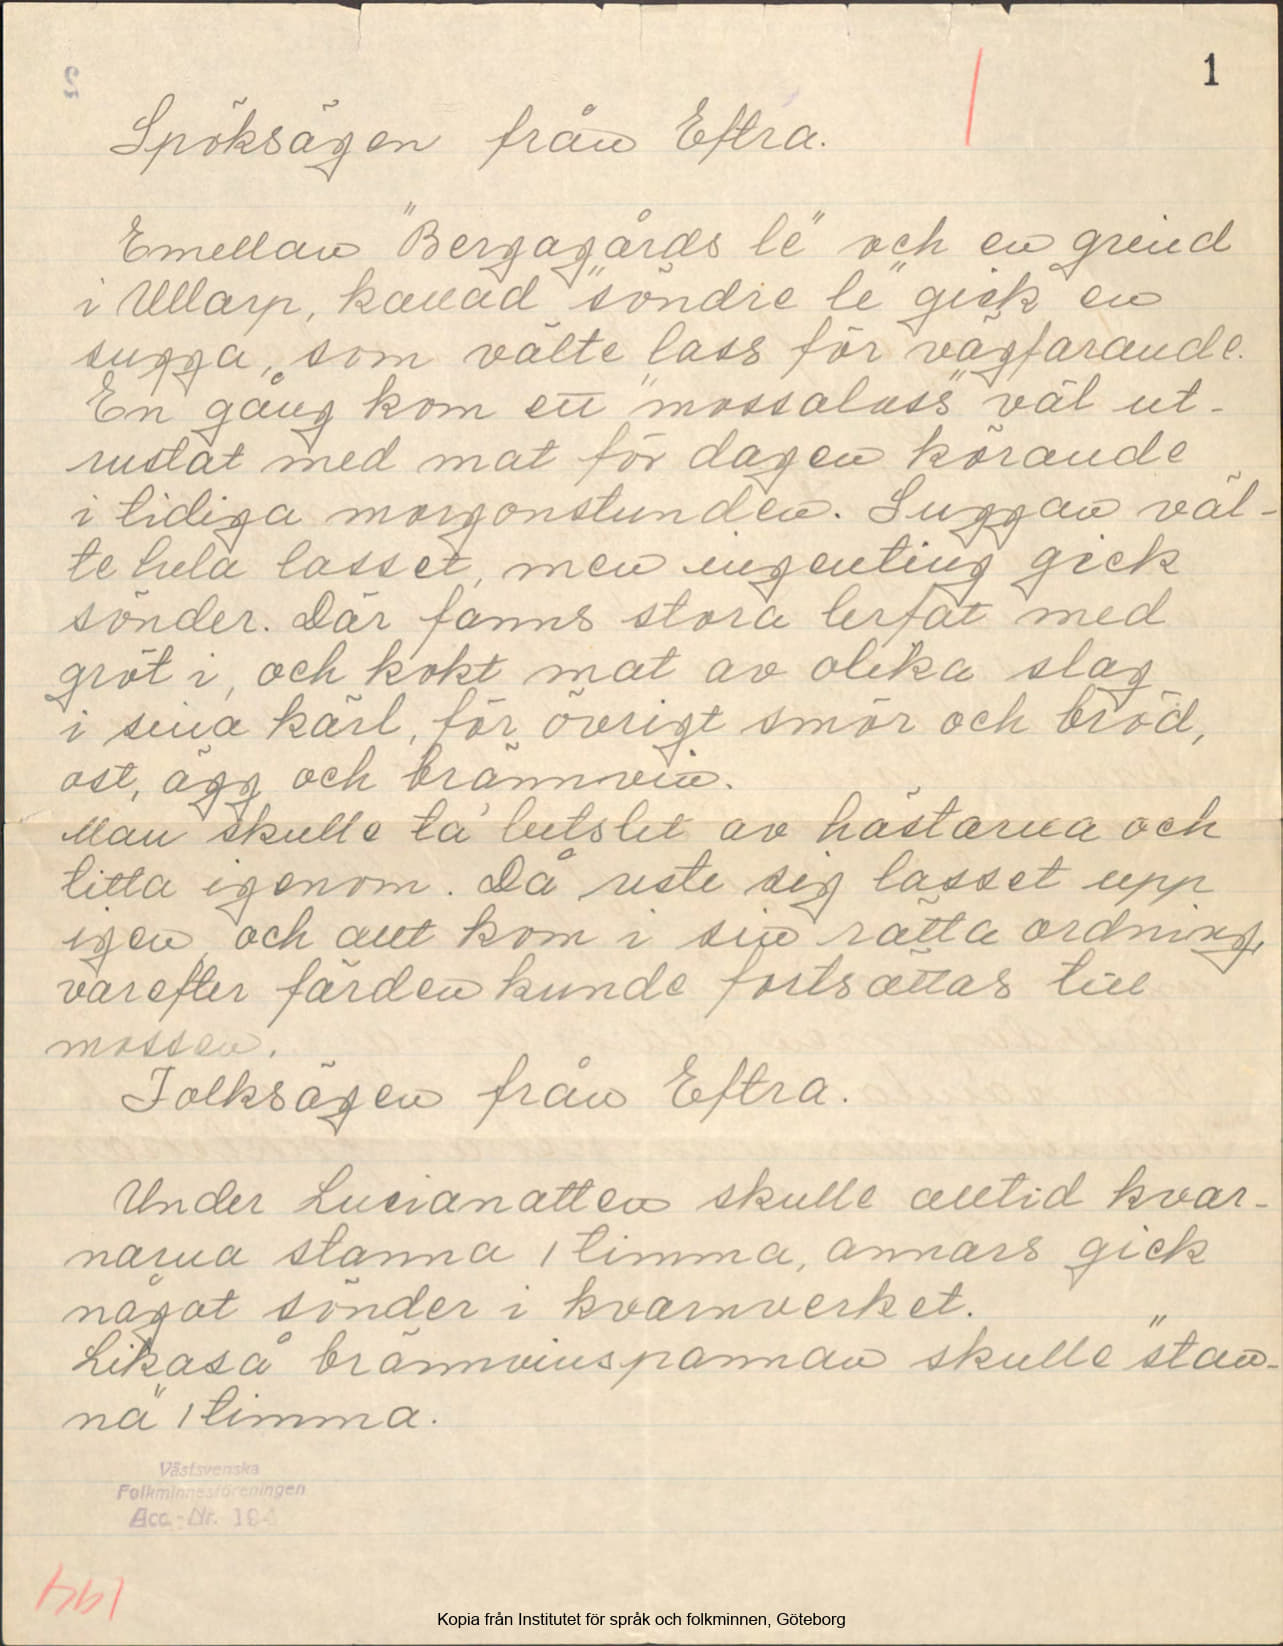 1
Spöksägen från Eftra.
Emellan "Bergagårds le" och en grind
i Ullarp, kallad "söndre le" gick en
sugga, som välte lass för vägfarande.
En gång kom ett "mossalass" väl ut-
rustat med mat för dagen körande
i tidiga morgonstunden. Suggan väl-
te hela lasset, men ingenting gick
sönder. Där fanns stora lerfat med
gröt i, och kokt mat av olika slag
i sina kärl, för övrigt smör och bröd,
ost, ägg och brännvin.
Man skulle ta' betslet av hästarna och
titta igenom. Då reste sig lasset upp
igen, och allt kom i sin rätta ordning,
varefter färden kunde fortsättas till
mossen.
Folksägen från Eftra.
Under Lucianatten skulle alltid kvar-
narna stanna 1 timma, annars gick
något sönder i kvarnverket.
Likaså brännvinspannan skulle "stan-
na" 1 timma.
Västsvenska
Folkminnesföreningen
Acc.-Nr. 194
194
Kopia från Institutet för språk och folkminnen, Göteborg